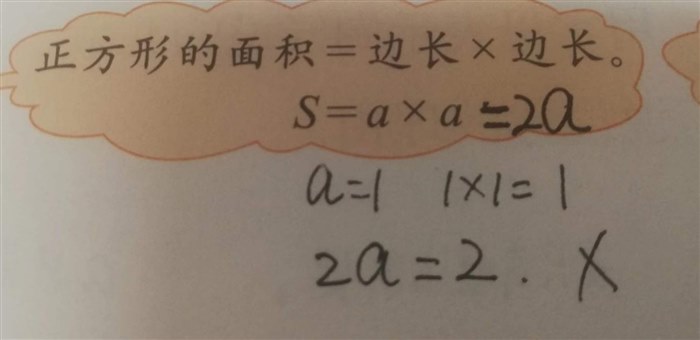 正方形的面积=边长×边长。
S=a×a=2a
a=1 1×1=1
2a=2. ×